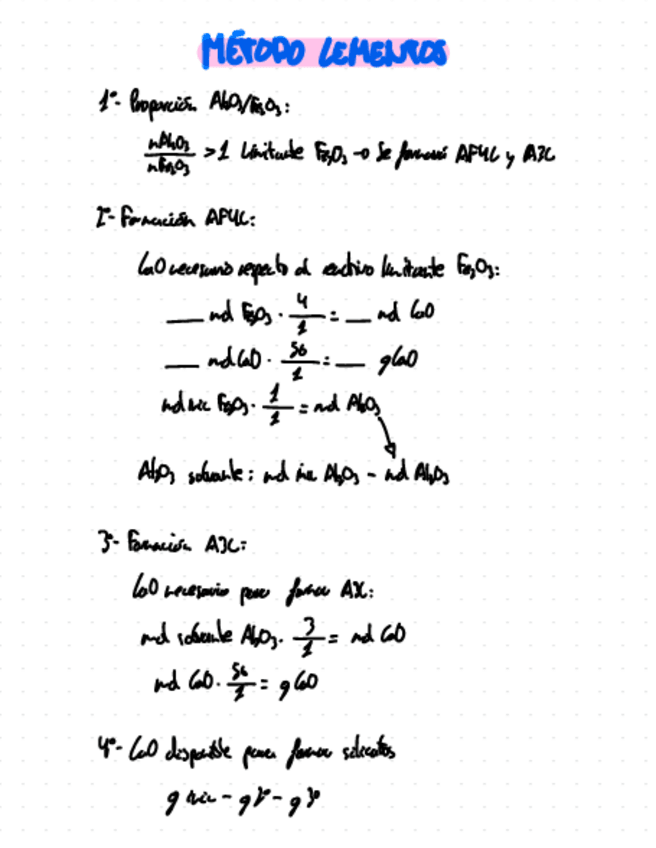 MÉTODO CEMENTOS
1º- Proporción Al2O3/Fe2O3:
nAl2O3 / nFe2O3 > 1 Limitante Fe2O3 → Se formará AF4C y A3C
2º- Formación AF4C:
CaO necesario respecto al reactivo limitante Fe2O3:
___ mol Fe2O3 · 4/1 = ___ mol CaO
___ mol CaO · 56/1 = ___ g CaO
mol inic Fe2O3 · 1/1 = mol Al2O3
Al2O3 sobrante: mol inic Al2O3 - mol Al2O3
3º- Formación A3C:
CaO necesario para formar A3C:
mol sobrante Al2O3 · 3/1 = mol CaO
mol CaO · 56/1 = g CaO
4º- CaO disponible para formar silicatos
g inic - g 2º - g 3º